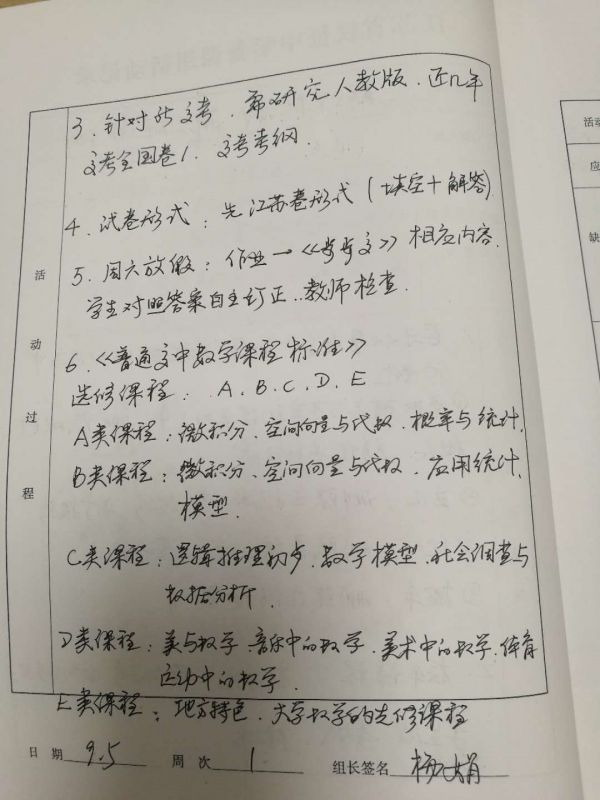 3、针对新高考,需研究人教版、近几年
高考全国卷1、高考考纲.
4、试卷形式:先江苏卷形式(填空+解答)
5、周六放假:作业→《步步高》相应内容.
学生对照答案自主订正.教师检查.
6、《普通高中数学课程标准》
选修课程:A、B、C、D、E
A类课程:微积分、空间向量与代数、概率与统计.
B类课程:微积分、空间向量与代数、应用统计、
模型.
C类课程:逻辑推理初步、数学模型、社会调查与
数据分析.
D类课程:美与数学、音乐中的数学、美术中的数学、体育
运动中的数学.
E类课程:地方特色、大学数学的先修课程
活动过程
日期 9.5 周次 1 组长签名 杨娟
活动
应
缺